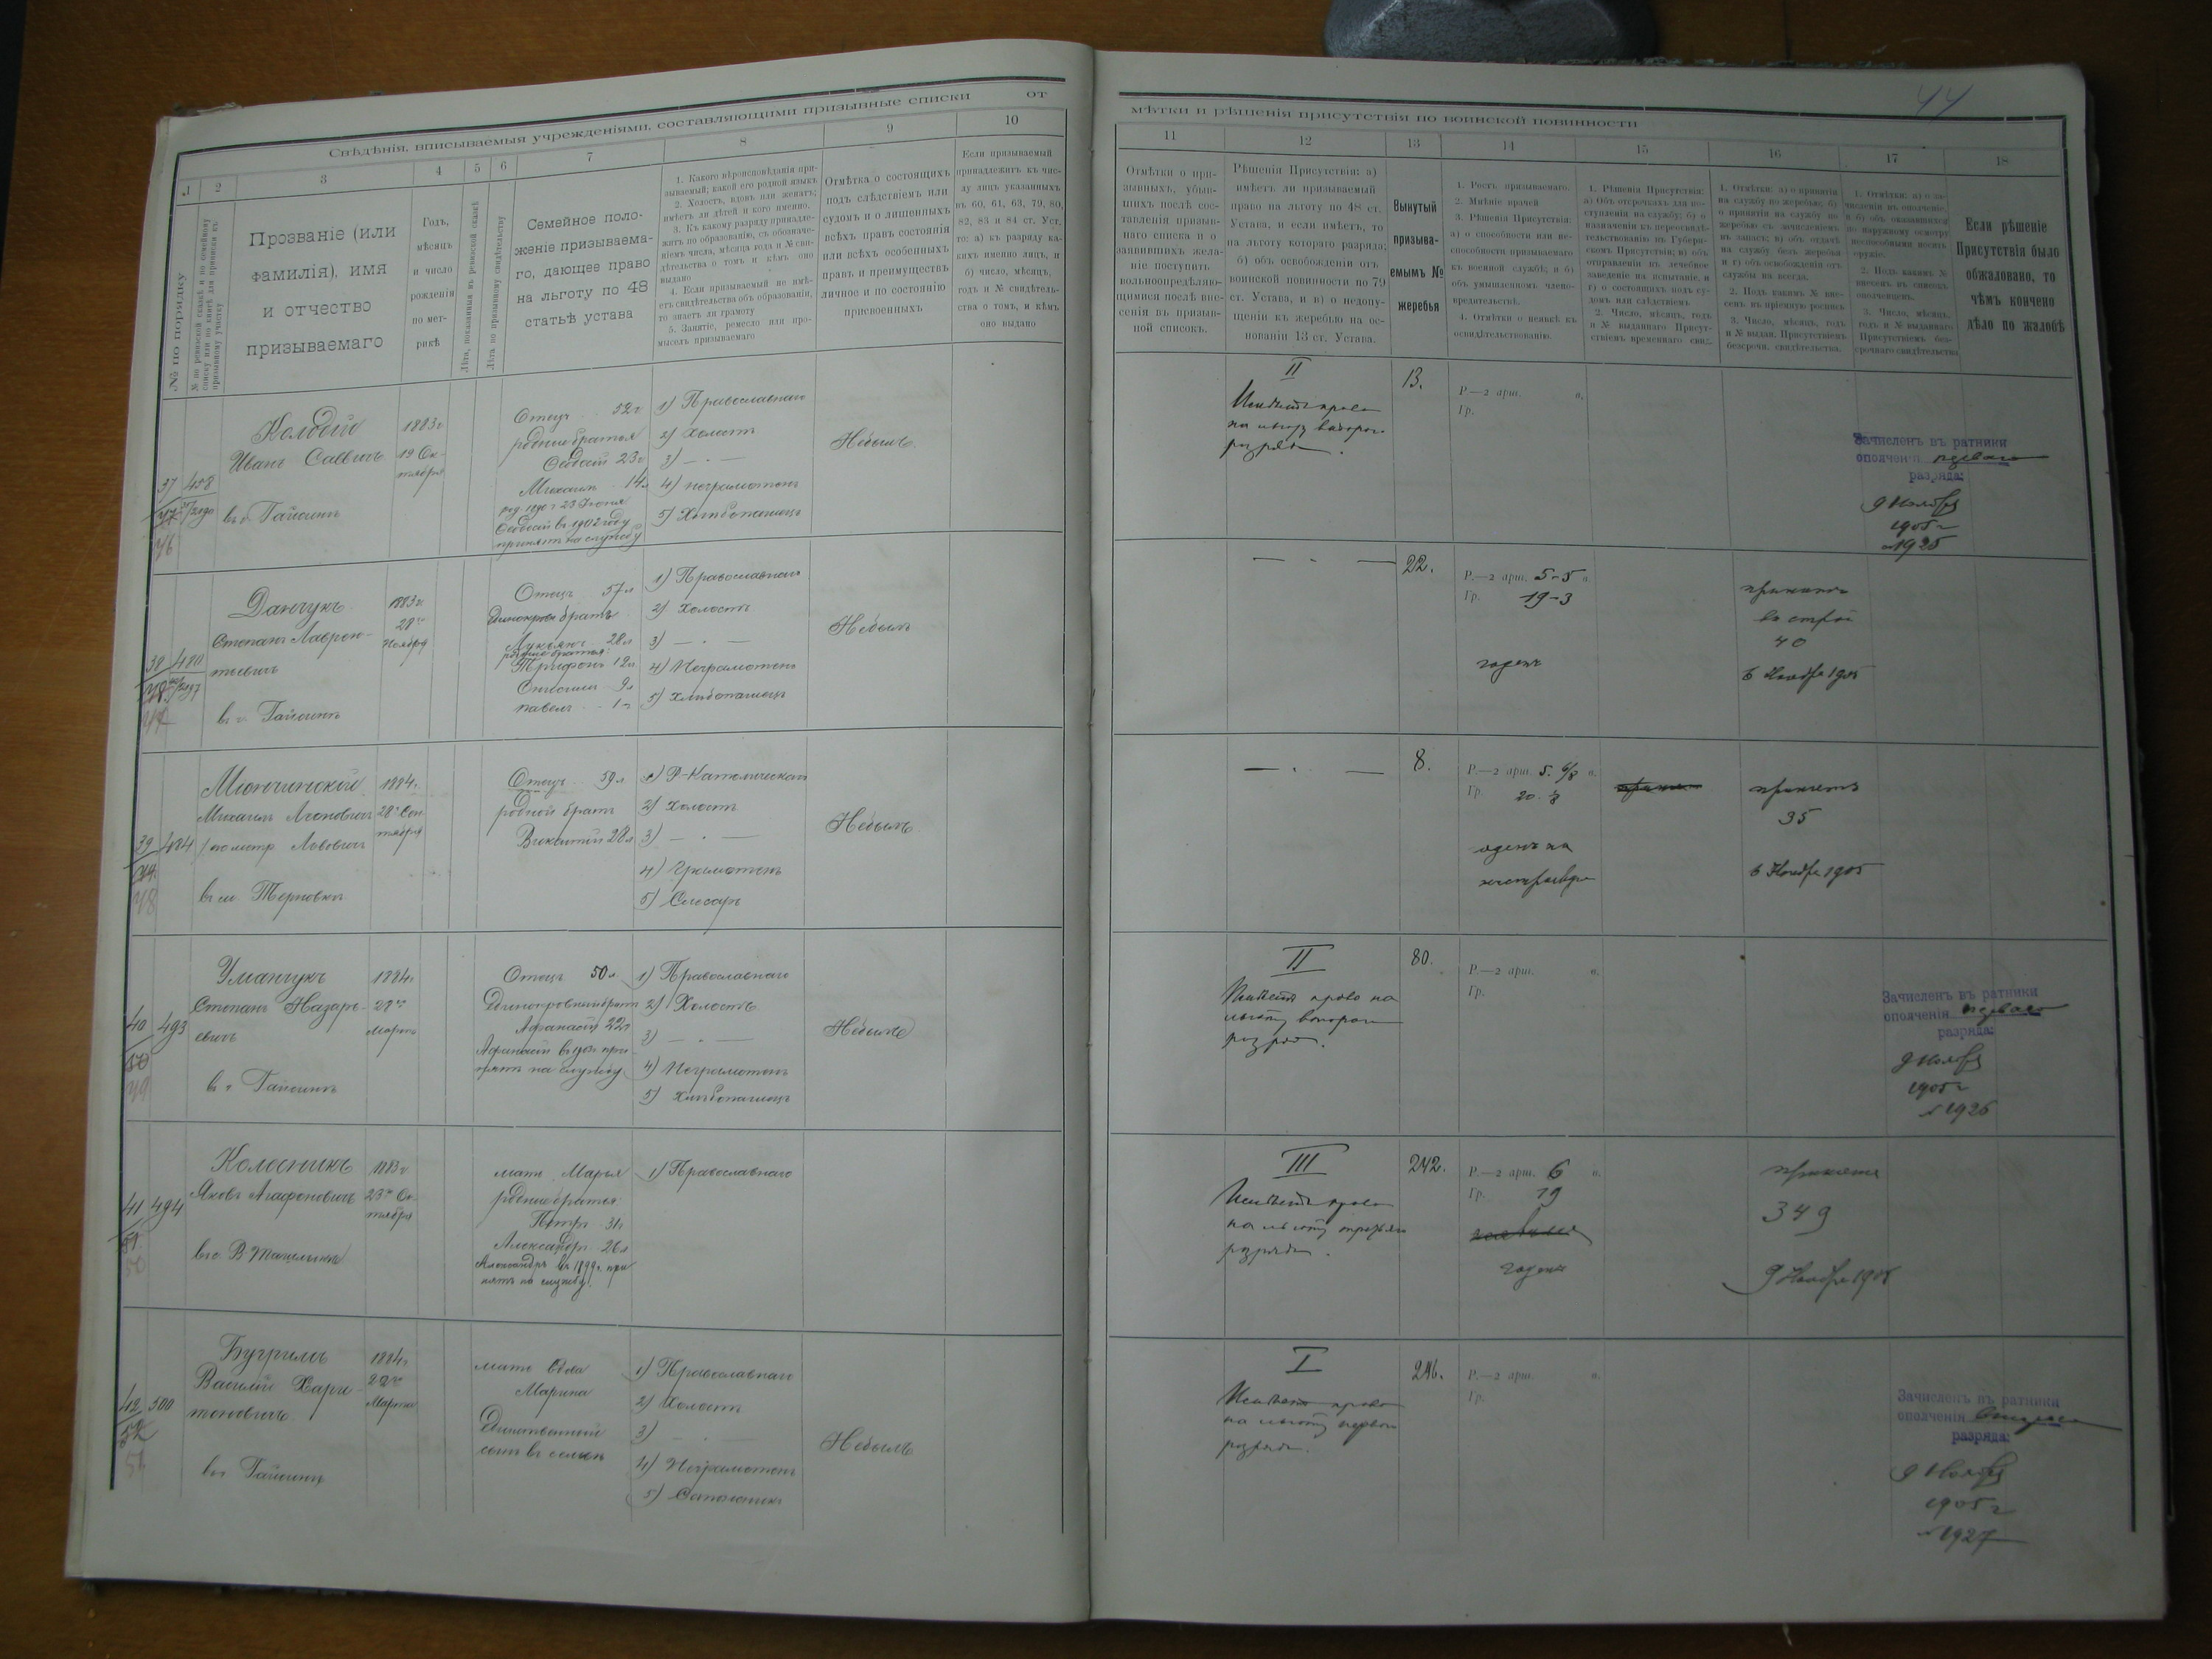 44
Свѣдѣнія, вписываемыя учрежденіями, составляющими призывные списки
от
1
2
3
4
5
6
7
8
9
10
№ по порядку
Прозваніе (или
фамилія), имя
и отчество
призываемаго
Годъ,
мѣсяцъ
и число
рожденія
по мет-
рикѣ
Лѣта, показанныя въ ревизской сказкѣ
Лѣта по призывному свидѣтельству
Семейное поло-
женіе призываема-
го, дающее право
на льготу по 48
статьѣ устава
1. Какого вѣроисповѣданія при-
зываемый; какой его родной языкъ
2. Холостъ, вдовъ или женатъ;
имѣетъ ли дѣтей и кого именно.
3. Къ какому разряду принадле-
житъ по образованію, съ обозначе-
ніемъ числа, мѣсяца года и № сви-
дѣтельства о томъ и кѣмъ оно
выдано
4. Если призываемый не имѣ-
етъ свидѣтельства объ образованіи,
то знаетъ ли грамоту
5. Занятіе, ремесло или про-
мыселъ призываемаго
Отмѣтка о состоящихъ
подъ слѣдствіемъ или
судомъ и о лишенныхъ
всѣхъ правъ состоянія
или всѣхъ особенныхъ
правъ и преимуществъ
личное и по состоянію
присвоенныхъ
Если призываемый
принадлежитъ къ чис-
лу лицъ указанныхъ
въ 60, 61, 63, 79, 80,
82, 83 и 84 ст. Уст.
то: а) къ разряду ка-
кихъ именно лицъ, и
б) число, мѣсяцъ,
годъ и № свидѣтель-
ства о томъ, и кѣмъ
оно выдано
мѣтки и рѣшенія присутствія по воинской повинности
11
12
13
14
15
16
17
18
Отмѣтки о при-
зывныхъ, убыв-
шихъ послѣ сос-
тавленія призыв-
наго списка и о
заявившихъ жела-
ніе поступить
вольноопредѣляю-
щимися послѣ вне-
сенія въ призыв-
ной списокъ.
Рѣшенія Присутствія: а)
имѣетъ ли призываемый
право на льготу по 48 ст.
Устава, и если имѣетъ, то
на льготу котораго разряда;
б) объ освобожденіи отъ
воинской повинности по 79
ст. Устава, и в) о недопу-
щеніи къ жеребью на ос-
нованіи 13 ст. Устава.
Вынутый
призыва-
емымъ №
жеребья
1. Ростъ призываемаго.
2. Мнѣніе врачей
3. Рѣшенія Присутствія:
а) о способности или не-
способности призываемаго
къ военной службѣ; и б)
объ умышленномъ члено-
вредительствѣ.
4. Отмѣтки о неявкѣ къ
освидѣтельствованію.
1. Рѣшенія Присутствія:
а) Объ отсрочкахъ для по-
ступленія на службу; б) о
назначеніи къ переосвидѣ-
тельствованію въ Губерн-
скомъ Присутствіи; в) объ
отправленіи въ лечебное
заведеніе на испытаніе, и
г) о состоящихъ подъ су-
домъ или слѣдствіемъ.
2. Число, мѣсяцъ, годъ
и № выданнаго Присут-
ствіемъ временнаго свид.
1. Отмѣтки: а) о принятіи
на службу по жеребью; б)
о принятіи на службу по
жеребью съ зачисленіемъ
въ запасъ; в) объ отдачѣ
на службу безъ жеребья
и г) объ освобожденіи отъ
службы на всегда.
2. Подъ какимъ № вне-
сенъ въ пріемную роспись
3. Число, мѣсяцъ, годъ
и № выдан. Присутствіемъ
безсрочн. свидѣтельства.
1. Отмѣтки: а) о за-
численіи въ ополченіе,
и б) объ оказавшихся
по наружному осмотру
неспособными носить
оружіе.
2. Подъ какимъ №
внесенъ въ списокъ
ополченцевъ.
3. Число, мѣсяцъ,
годъ и № выданнаго
Присутствіемъ без-
срочнаго свидѣтельства
Если рѣшеніе
Присутствія было
обжаловано, то
чѣмъ кончено
дѣло по жалобѣ
37 458
46
Колодій
Иванъ Саввичъ
въ г. Гайсинѣ
1883 г.
19 Ок-
тября
Отецъ 52 г
родные братья
23 г
Михаилъ 14 л
род 1890 г 23 Іюня
в 1902 году
принятъ на службу
1) Православнаго
2) Холостъ
3) — " —
4) неграмотенъ
5) Хлѣбопашецъ
Небылъ
II
Имѣетъ право
на льготу второго
разряда.
13.
Р.—2 арш. в.
Гр.
Зачисленъ въ ратники
ополченія перваго
разряда:
9 Ноября
1905 г
№ 1925
38 480
Данчукъ
Степанъ Лаврен-
тьевичъ
въ г. Гайсинѣ
1883 г.
28го
Ноября
Отецъ 57 л
Единокровн братъ
Лукьянъ 28 л
родные братья:
Трифонъ 12 л
9 л
павелъ 1 г
1) Православнаго
2) Холостъ
3) — " —
4) Неграмотенъ
5) Хлѣбопашецъ
Небылъ
— " —
22.
Р.—2 арш. 5-5 в.
Гр. 19-3
годенъ
принятъ
въ строй
40
6 Ноября 1905
39 484
48
Михаилъ
въ м. Терновкѣ
1884 г.
28го Сен-
тября
Отецъ 59 л
родной братъ
Викентій 28 л
1) Р-Католическаго
2) Холостъ
3) — " —
4) Грамотенъ
5) Слесарь
Небылъ
— " —
8.
Р.—2 арш. 5. 6/8 в.
Гр. 20.
принятъ
35
6 Ноября 1905
40 493
49
Уманчукъ
Степанъ Назарь-
евичъ
въ г. Гайсинѣ
1884 г.
28го
Марта
Отецъ 50 л.
Единокровный братъ
Афанасій 22 г
Афанасій въ при-
нятъ на службу
1) Православнаго
2) Холостъ
3) — " —
4) Неграмотенъ
5) Хлѣбопашецъ
Небылъ
II
Имѣетъ право на
льготу второго
разряда.
80.
Р.—2 арш. в.
Гр.
Зачисленъ въ ратники
ополченія перваго
разряда:
9 Ноября
1905 г
№ 1926
41 494
51.
50
Колесникъ
Яковъ Агафоновичъ
1883 г
23го Ок-
тября
мать Марья
родные братья:
Петръ 31 г
Александръ 26 л
Александръ въ 1899 г. при-
нятъ на службу.
1) Православнаго
III
Имѣетъ право
на льготу третьяго
разряда.
242.
Р.—2 арш. 6 в.
Гр. 19
годенъ
принятъ
349
9 Ноября 1905
42 500
52
51
Бугримъ
Василій Хари-
тоновичъ
въ г. Гайсинѣ
1884 г
22го
Марта
мать вдова
Марина
Единственный
сынъ въ семьѣ
1) Православнаго
2) Холостъ
3) — " —
4) Неграмотенъ
5)
Небылъ
I
Имѣетъ право
на льготу перваго
разряда.
246.
Р.—2 арш. в.
Гр.
Зачисленъ въ ратники
ополченія
разряда:
9 Ноября
1905 г
№ 1927